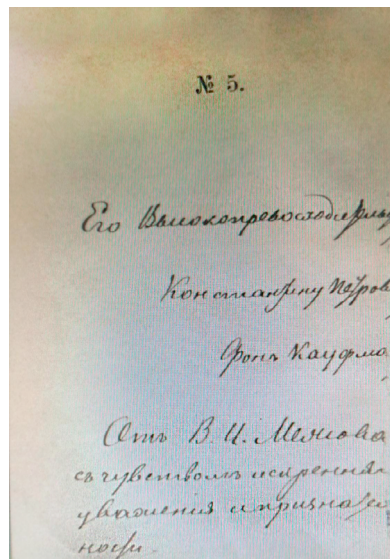 № 5.
Его Высокопревосходительс
Константину Петров
Фонъ Кауфма
Отъ В. И. Межова
съ чувствомъ искренняг
уваженія и признатель
ности.